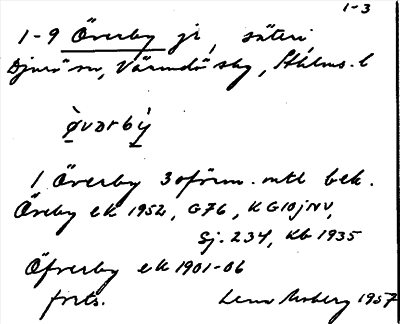 1-3
1-9 Överby jr, säteri
Djurö sn, Värmdö skg, Sthlms. l
ø̀vərbý
1 Överby 3 oförm. mtl bek.
Öreby ek 1952, G76, KG10jNV,
Sj. 234, Kb 1935
Öfverby ek 1901-06
forts.
1957